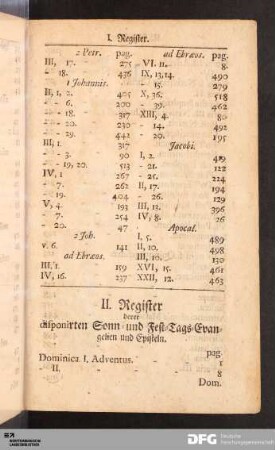 I. Register.
2 Petr. pag.
III, 17. - 275
- 18. 436
1 Johannis.
II, 1, 2. 405
- - 6. 200
- - 18. - 317
- - 20. 230
- - 29. 442
III, 1. 317
- - 3. - 267
- - 19, 20. 513
IV, 1 267
- 7. 262
- - 19. 404
V, 4. 193
- 7. 254
- 20. 47
2 Joh.
v. 6. 141
ad Ebræos.
III, 1. 159
IV, 16. 237
ad Ebræos. pag.
VI, 11. - 80
IX, 13, 14. 490
- 15. 279
X, 36. 518
- - 39. 462
XIII, 4. 80
- 14. 492
- 20. 195
Jacobi.
I, 2. 419
- 21. 122
- 22. 224
II, 17. 194
- 26. 129
III, 13. 396
IV, 8. 26
Apocal.
I, 5. 489
II, 10. 498
III, 10. 130
XVI, 15. 461
XXII, 12. 463
II. Register
derer
disponirten Sonn- und Fest-Tags-Evan-
gelien und Episteln.
pag.
Dominica I. Adventus. - 1
- II. - - 8
Dom.
DFG Deutsche
Forschungsgemeinschaft